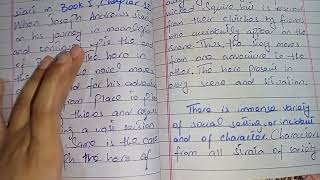 start in Book I, Chapter
When Joseph Andrews starts
on his journey in moonlight
and continues upto the end
of The hero in
the novel moves
and for his adventure
from place to place
thieves and
a vast section
Same is the case
the hero of
wicked Squire but is rescued
from their clutches by friends
who accidently appear on the
scene. Thus, the story moves
from one adventure to the
other. The hero present in
every scene and situation.
There is immense variety
of social setting, of incident
and of character. Characters
from all strata of society